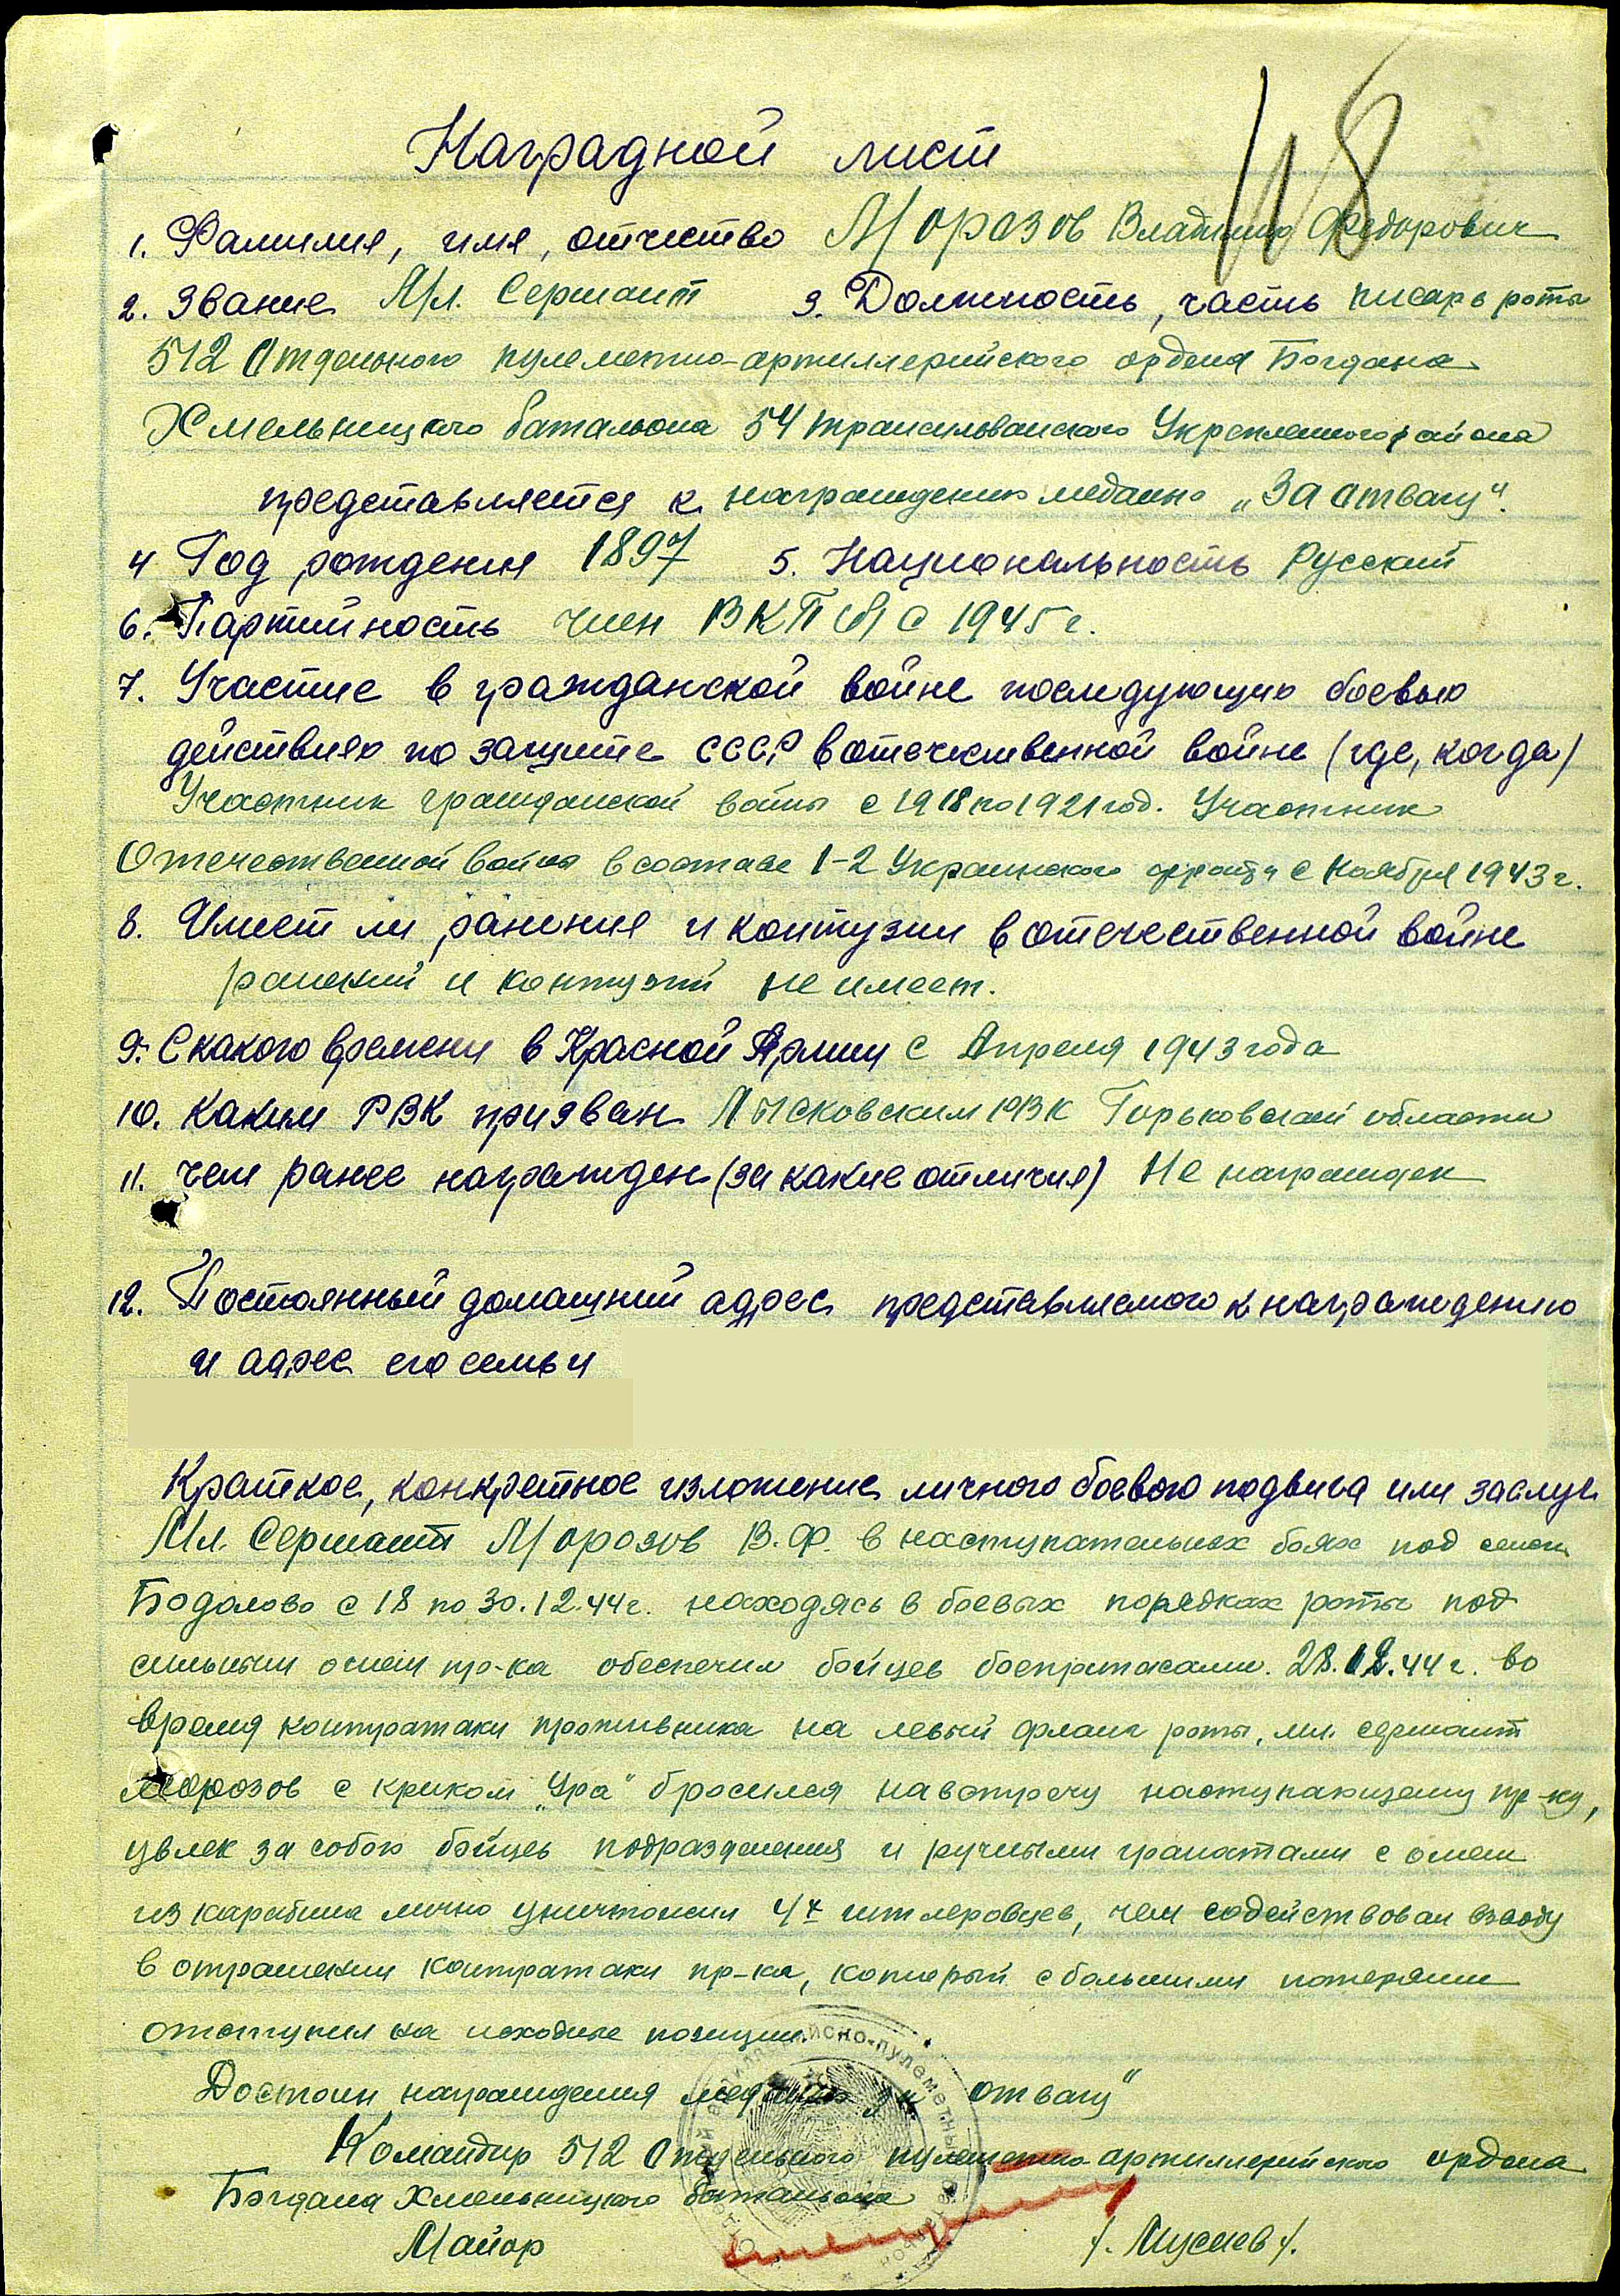 118
Наградной лист
1. Фамилия, имя, отчество Морозов Владимир Федорович
2. Звание Мл. Сержант 3. Должность, часть писарь роты
512 Отдельного пулеметно-артиллерийского ордена Богдана
Хмельницкого батальона 54 трансильванского Укрепленного района
представляется к награждению медалью „За отвагу".
4 Год рождения 1897 5. Национальность Русский
6. Партийность член ВКП(б) с 1945 г.
7. Участие в гражданской войне последующих боевых
действиях по защите СССР в отечественной войне (где, когда)
Участник гражданской войны с 1918 по 1921 год. Участник
Отечественной войны в составе 1-2 Украинского фронта с Ноября 1943 г.
8. Имеет ли ранения и контузии в отечественной войне
ранений и контузий не имеет.
9. С какого времени в Красной Армии с Апреля 1943 года
10. Каким РВК призван Лысковским РВК Горьковской области
11. чем ранее награжден (за какие отличия) Не награжден
12. Постоянный домашний адрес представляемого к награждению
и адрес его семьи
Краткое, конкретное изложение личного боевого подвига или заслуг
Мл. Сержант Морозов В.Ф. в наступательных боях под селом
Бодолово с 18 по 30.12.44 г. находясь в боевых порядках роты под
сильным огнем пр-ка обеспечил бойцев боепрпасами. 28.12.44 г. во
время контратаки противника на левый фланг роты, мл. сержант
Морозов с криком „Ура" бросился навстречу наступающему пр-ку,
увлек за собою бойцев подразделения и ручными гранатами с огнем
из карабина лично уничтожил 4х гитлеровцев, чем содействовал взводу
в отражении контратаки пр-ка, который с большими потерями
отступил на исходные позиции.
Достоин награждения медалью „За отвагу"
Командир 512 Отдельного пулеметно-артиллерийского ордена
Богдана Хмельницкого батальона
Майор /. Мусиев /.